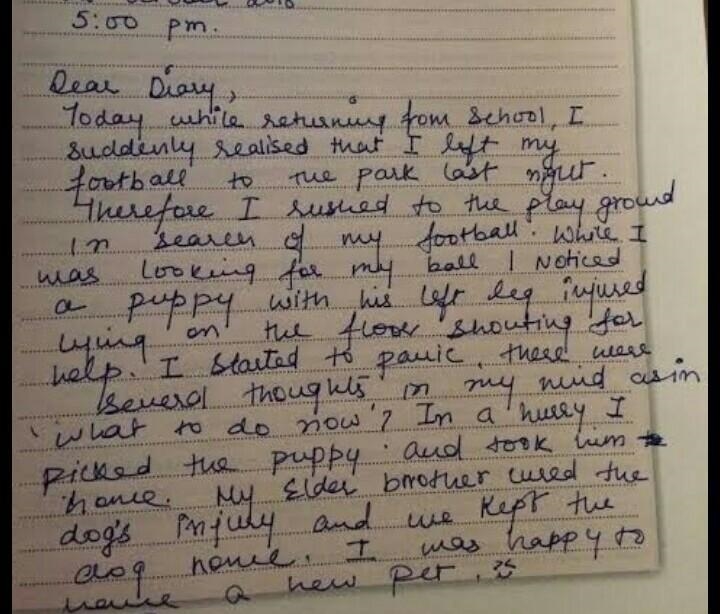 October 2018
5:00 pm.
Dear Diary,
Today while returning from School, I
suddenly realised that I left my
football to the park last night.
Therefore I rushed to the play ground
in search of my football. While I
was looking for my ball I noticed
a puppy with his left leg injured
lying on the floor shouting for
help. I started to panic, there were
several thoughts in my mind as in
'what to do now'? In a hurry I
picked the puppy and took him
home. My Elder brother cured the
dog's injury and we kept the
dog home. I was happy to
have a new pet.